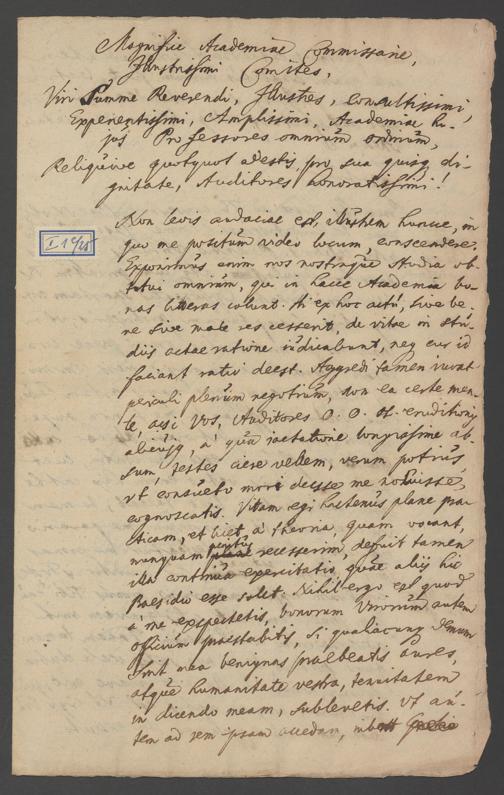 Magnifice Academiae Commissarie,
Illustrissimi Comites,
Viri Summe Reverendi, Illustres, Consultissimi,
Experientissimi, Amplissimi, Academiae hu-
jus Professores omnium ordinum,
Reliquive quotquot adestis, pro sua quisq di-
gnitate, Auditores honoratissimi!
Non levis audaciae est, illustrem hunce, in
quo me positum video locum, conscendere.
Exponimus enim nos nostraque studia ob-
tutui omnium, qui in hacce Academia bo-
nas litteras colunt. At ex hoc actu, sive be-
ne sive male res cesserit, de vitae in stu-
diis actae ratione iudicabunt, neq cur id
faciant ratio deest. Aggredi tamen iuvat
periculi plenum negotium, non ea certe men-
te, acsi Vos, Auditores O. O. et eruditionis
alicujq, a qua jactatione longissime ab-
sum, testes ciere vellem, verum potius
ut consueto mori deesse me noluisse,
cognoscatis. Vitam egi hactenus plane pra-
cticam, et licet a theoria, quam vocant,
nunquam penitus recesserim, defuit tamen
illa continua exercitatio, quae aliis hic
Praesidio esse solet. Nihil ergo est quod
a me expectetis, bonorum Virorum autem
officium praestabitis, si qualiacunq demum
sint mea benignas praebeatis aures,
atque humanitate vestra, tenuitatem
in dicendo meam, sublevetis. Ut au-
tem ad rem ipsam accedam,